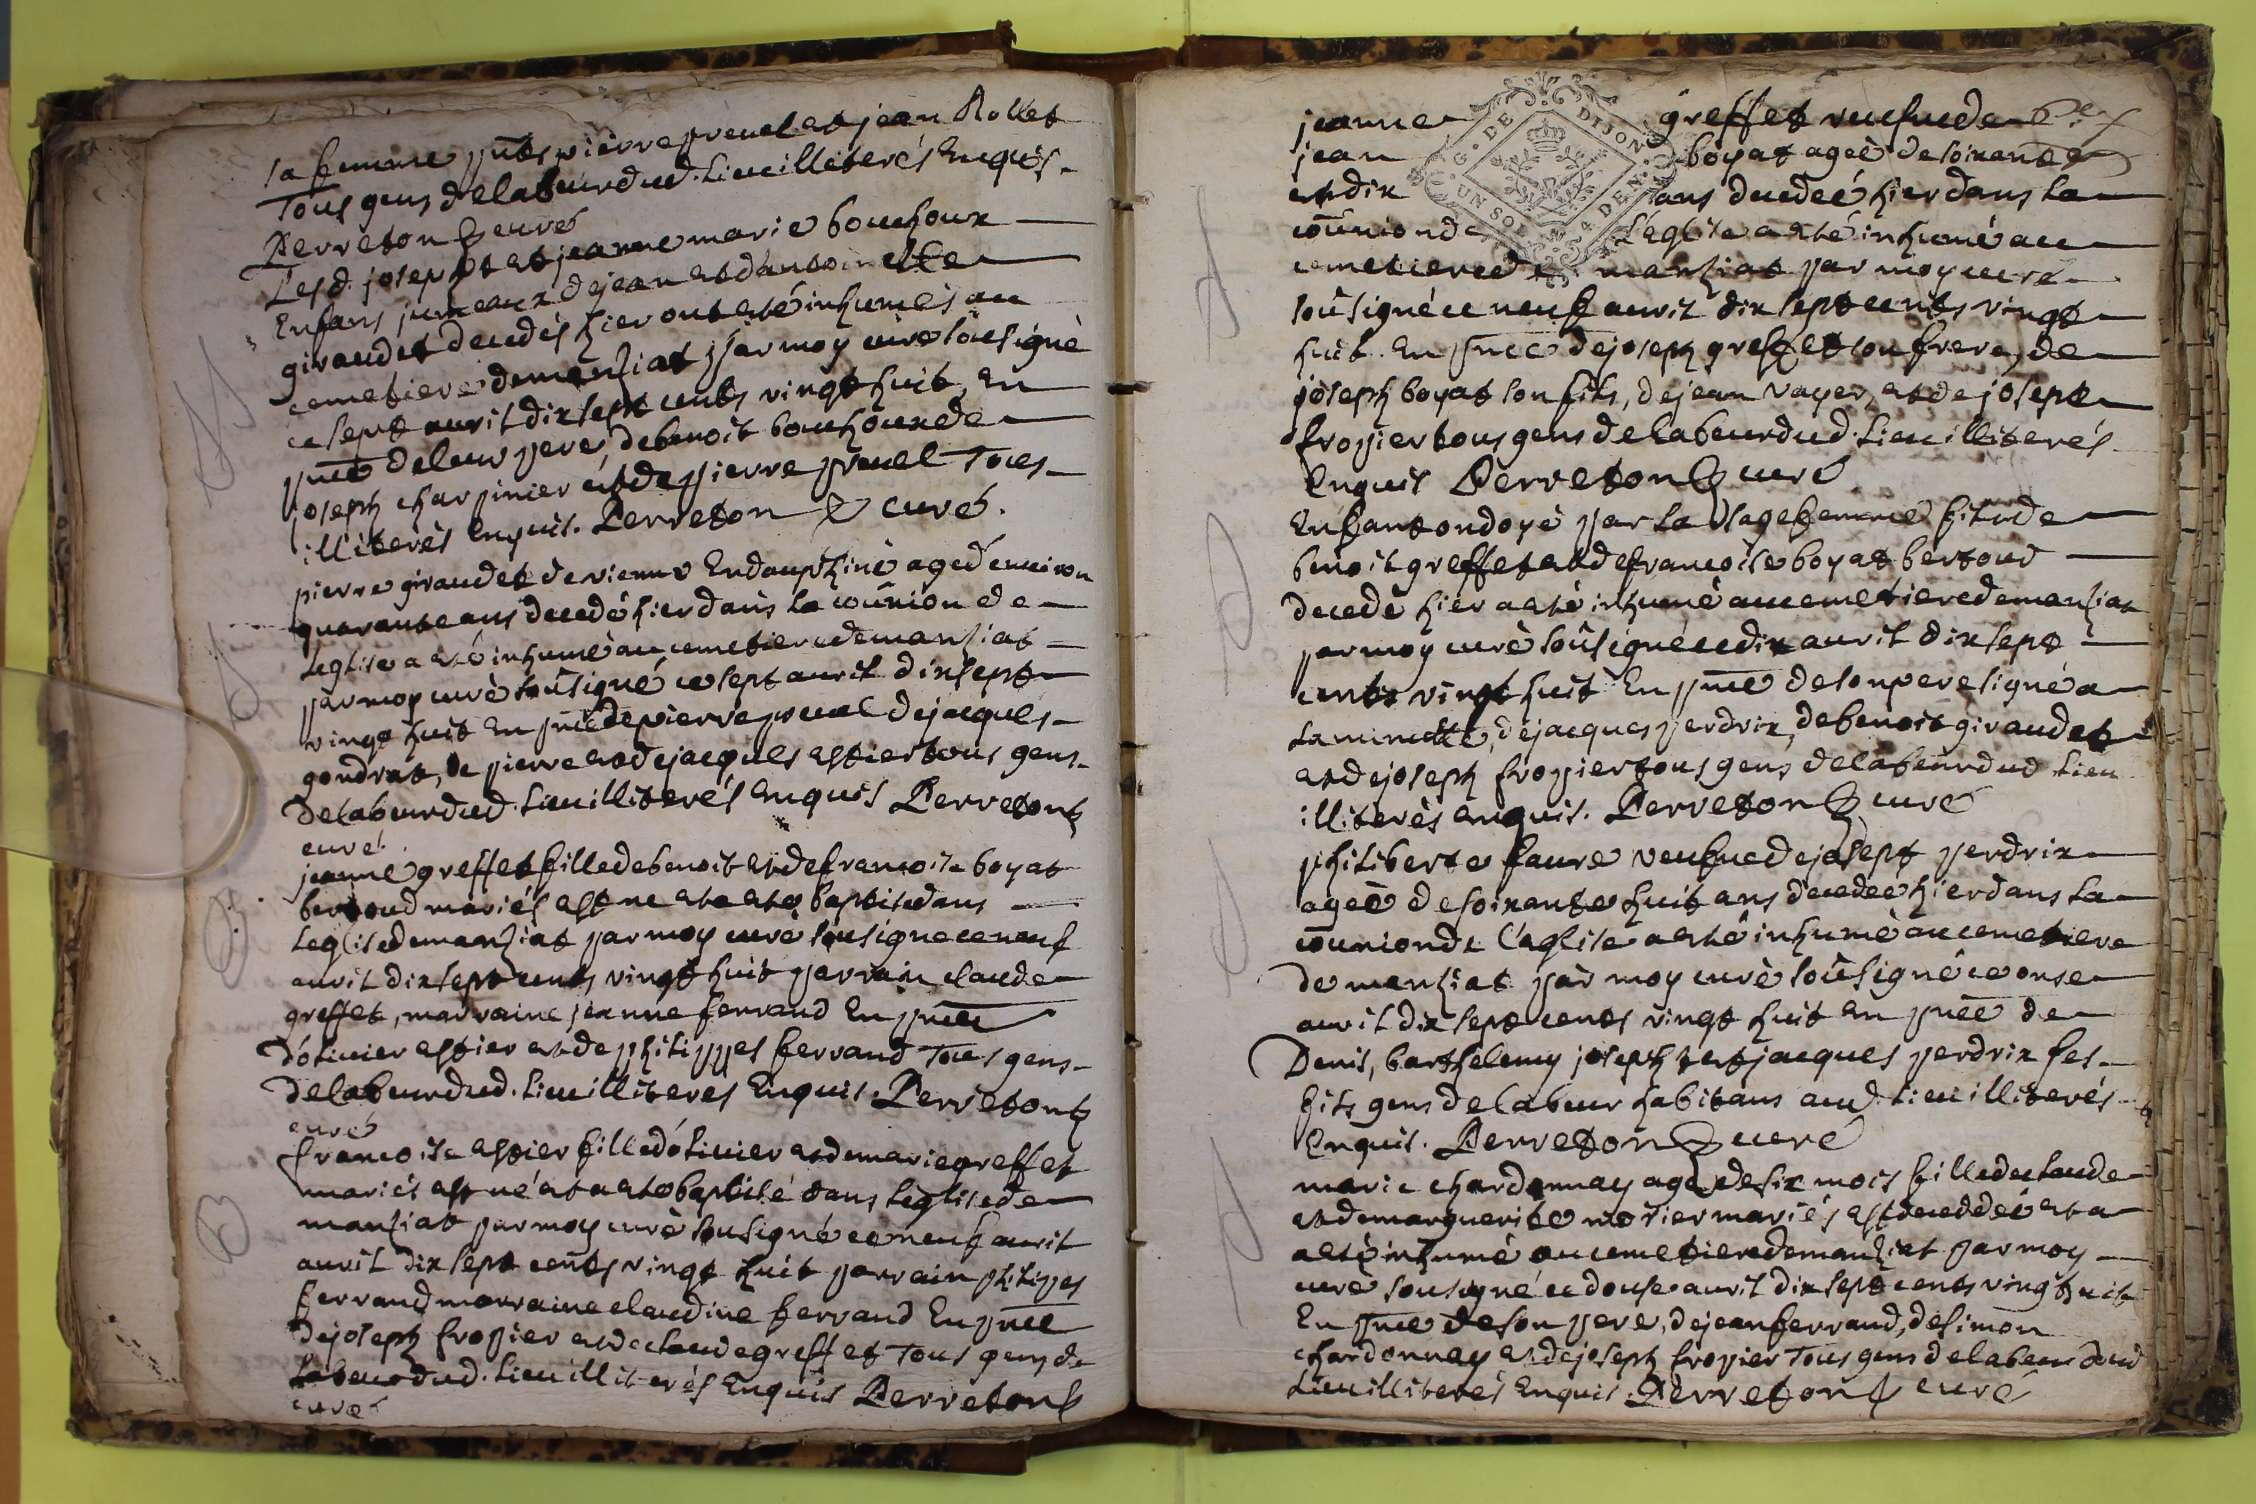 sa femme pnts pierre preuel et jean Rollet
Tous gens de labeur dud. Lieu illiterés Enquis.
Perreton curé
Lesd. joseph et jeanne marie bouchoux
Enfans jumeaux de jean et d'antoinette
giraudet decedés hier ont eté inhumés au
cemetiere de manziat par moy curé sousigné
ce sept auril dix sept cents vingt huit en
pnce de leur pere, de benoit bouchoux de
joseph charpinier et de pierre preuel Tous
illiterés Enquis. Perreton curé.
pierre giraudet de vienne En dauphiné agé d'enuiron
quarante ans decedé hier dans la coūnion de
L'eglise a eté inhumé au cemetiere de manziat
par moy curé soūsigné ce sept auril dix sept
vingt huit En pnce de pierre preuel de jacques
gondrat, de pierre et de jacques astier tous gens
de labeur dud. Lieu illiterés Enquis Perreton
curé.
jeanne greffet fille de benoit et de francoise boyat
bertoud mariés est ne et a eté baptisé dans
Leglise de manziat par moy curé sousigné ce neuf
auril dix sept cents vingt huit parrain claude
greffet, marraine jeanne ferraud En pnce
d'oliuier astier et de philippes ferraud Tous gens
de labeur dud. Lieu illiteres Enquis. Perreton
curé
francoise astier fille d'oliuier et de marie greffet
mariés est né et a eté baptisé dans Leglise de
manziat par moy curé sousigné ce neuf auril
auril dix sept cents vingt huit parrain philippes
ferraud marraine claudine ferraud En pnce
de joseph fropier et de claude greffet Tous gens de
Labeur dud. Lieu illiterés Enquis Perreton
curé
jeanne greffet veufue de
jean boyat ageé de soixante
et dix ans decedeé hier dans la
coūnion de L'eglise a eté inhumé au
cemetiere de manziat par moy curé
soūsigné ce neuf auril dix sept cents vingt
huit En pnce de joseph greffet son frere, de
joseph boyat son fils, de jean vayer, et de joseph
fropier tous gens de labeur dud. Lieu illiterés
Enquis Perreton curé
Enfant ondoyé par la sage femme fils de
benoit greffet et de francoise boyat bertoud
decedé hier a eté inhumé au cemetiere de manziat
par moy curé soūsigné ce dix auril dix sept
cents vingt huit En pnce de son pere signé a
La minutte, de jacques perdrix, de benoit giraudet
et de joseph fropier tous gens de labeur dud Lieu
illiterés enquis. Perreton curé
philiberte faure veufue de joseph perdrix
ageé de soixante huit ans decedeé hier dans La
coūnion de L'eglise a eté inhumé au cemetiere
de manziat par moy curé soūsigné ce onse
auril dix sept cents vingt huit En pnce de
Denis, barthelemy joseph et jacques perdrix ses
fils gens de labeur habitans aud. Lieu illiterés
Enquis. Perreton curé
marie chardonnay agé de six mois fille de claude
et de marguerite morier mariés est decedeé et a
a eté inhumé au cemetiere de manziat par moy
curé sousigné ce douse auril dix sept cents vingt huit
En pnce de son pere, de jean ferraud, de simon
chardonnay et de joseph fropier Tous gens de labeur dud
Lieu illiterés Enquis. Perreton curé
G. DE DIJON
UN SOL 4 DEN.